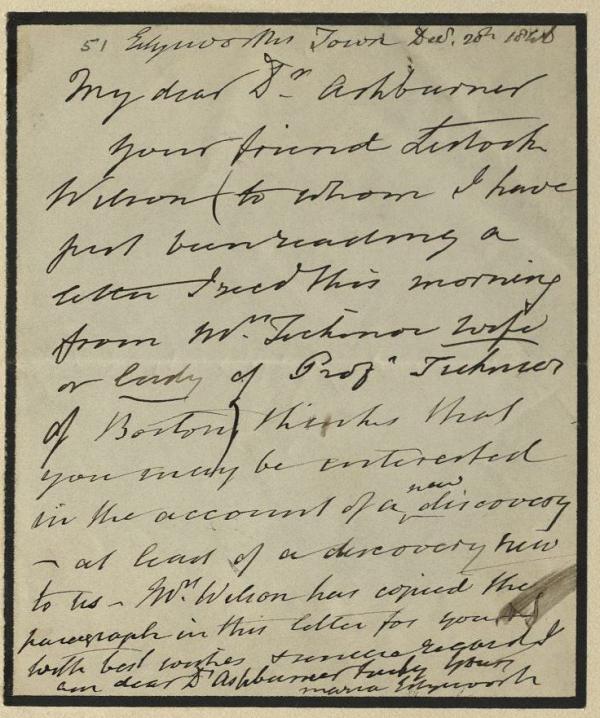 51 Edgeworths Town Dec. 20th 184
My dear Dr Ashburner
your friend Lestock
Wilson (to whom I have
just been reading a
letter I recd this morning
from Mrs. Ticknor wife
or lady of Profr Ticknor
of Boston) thinks that
you may be interested
in the account of a new discovery
– at least of a discovery new
to us – Mrs. Wilson has copied the
paragraph in this letter for you and
with best wishes & sincere regard I
am dear Dr Ashburner truly yours
Maria Edgeworth